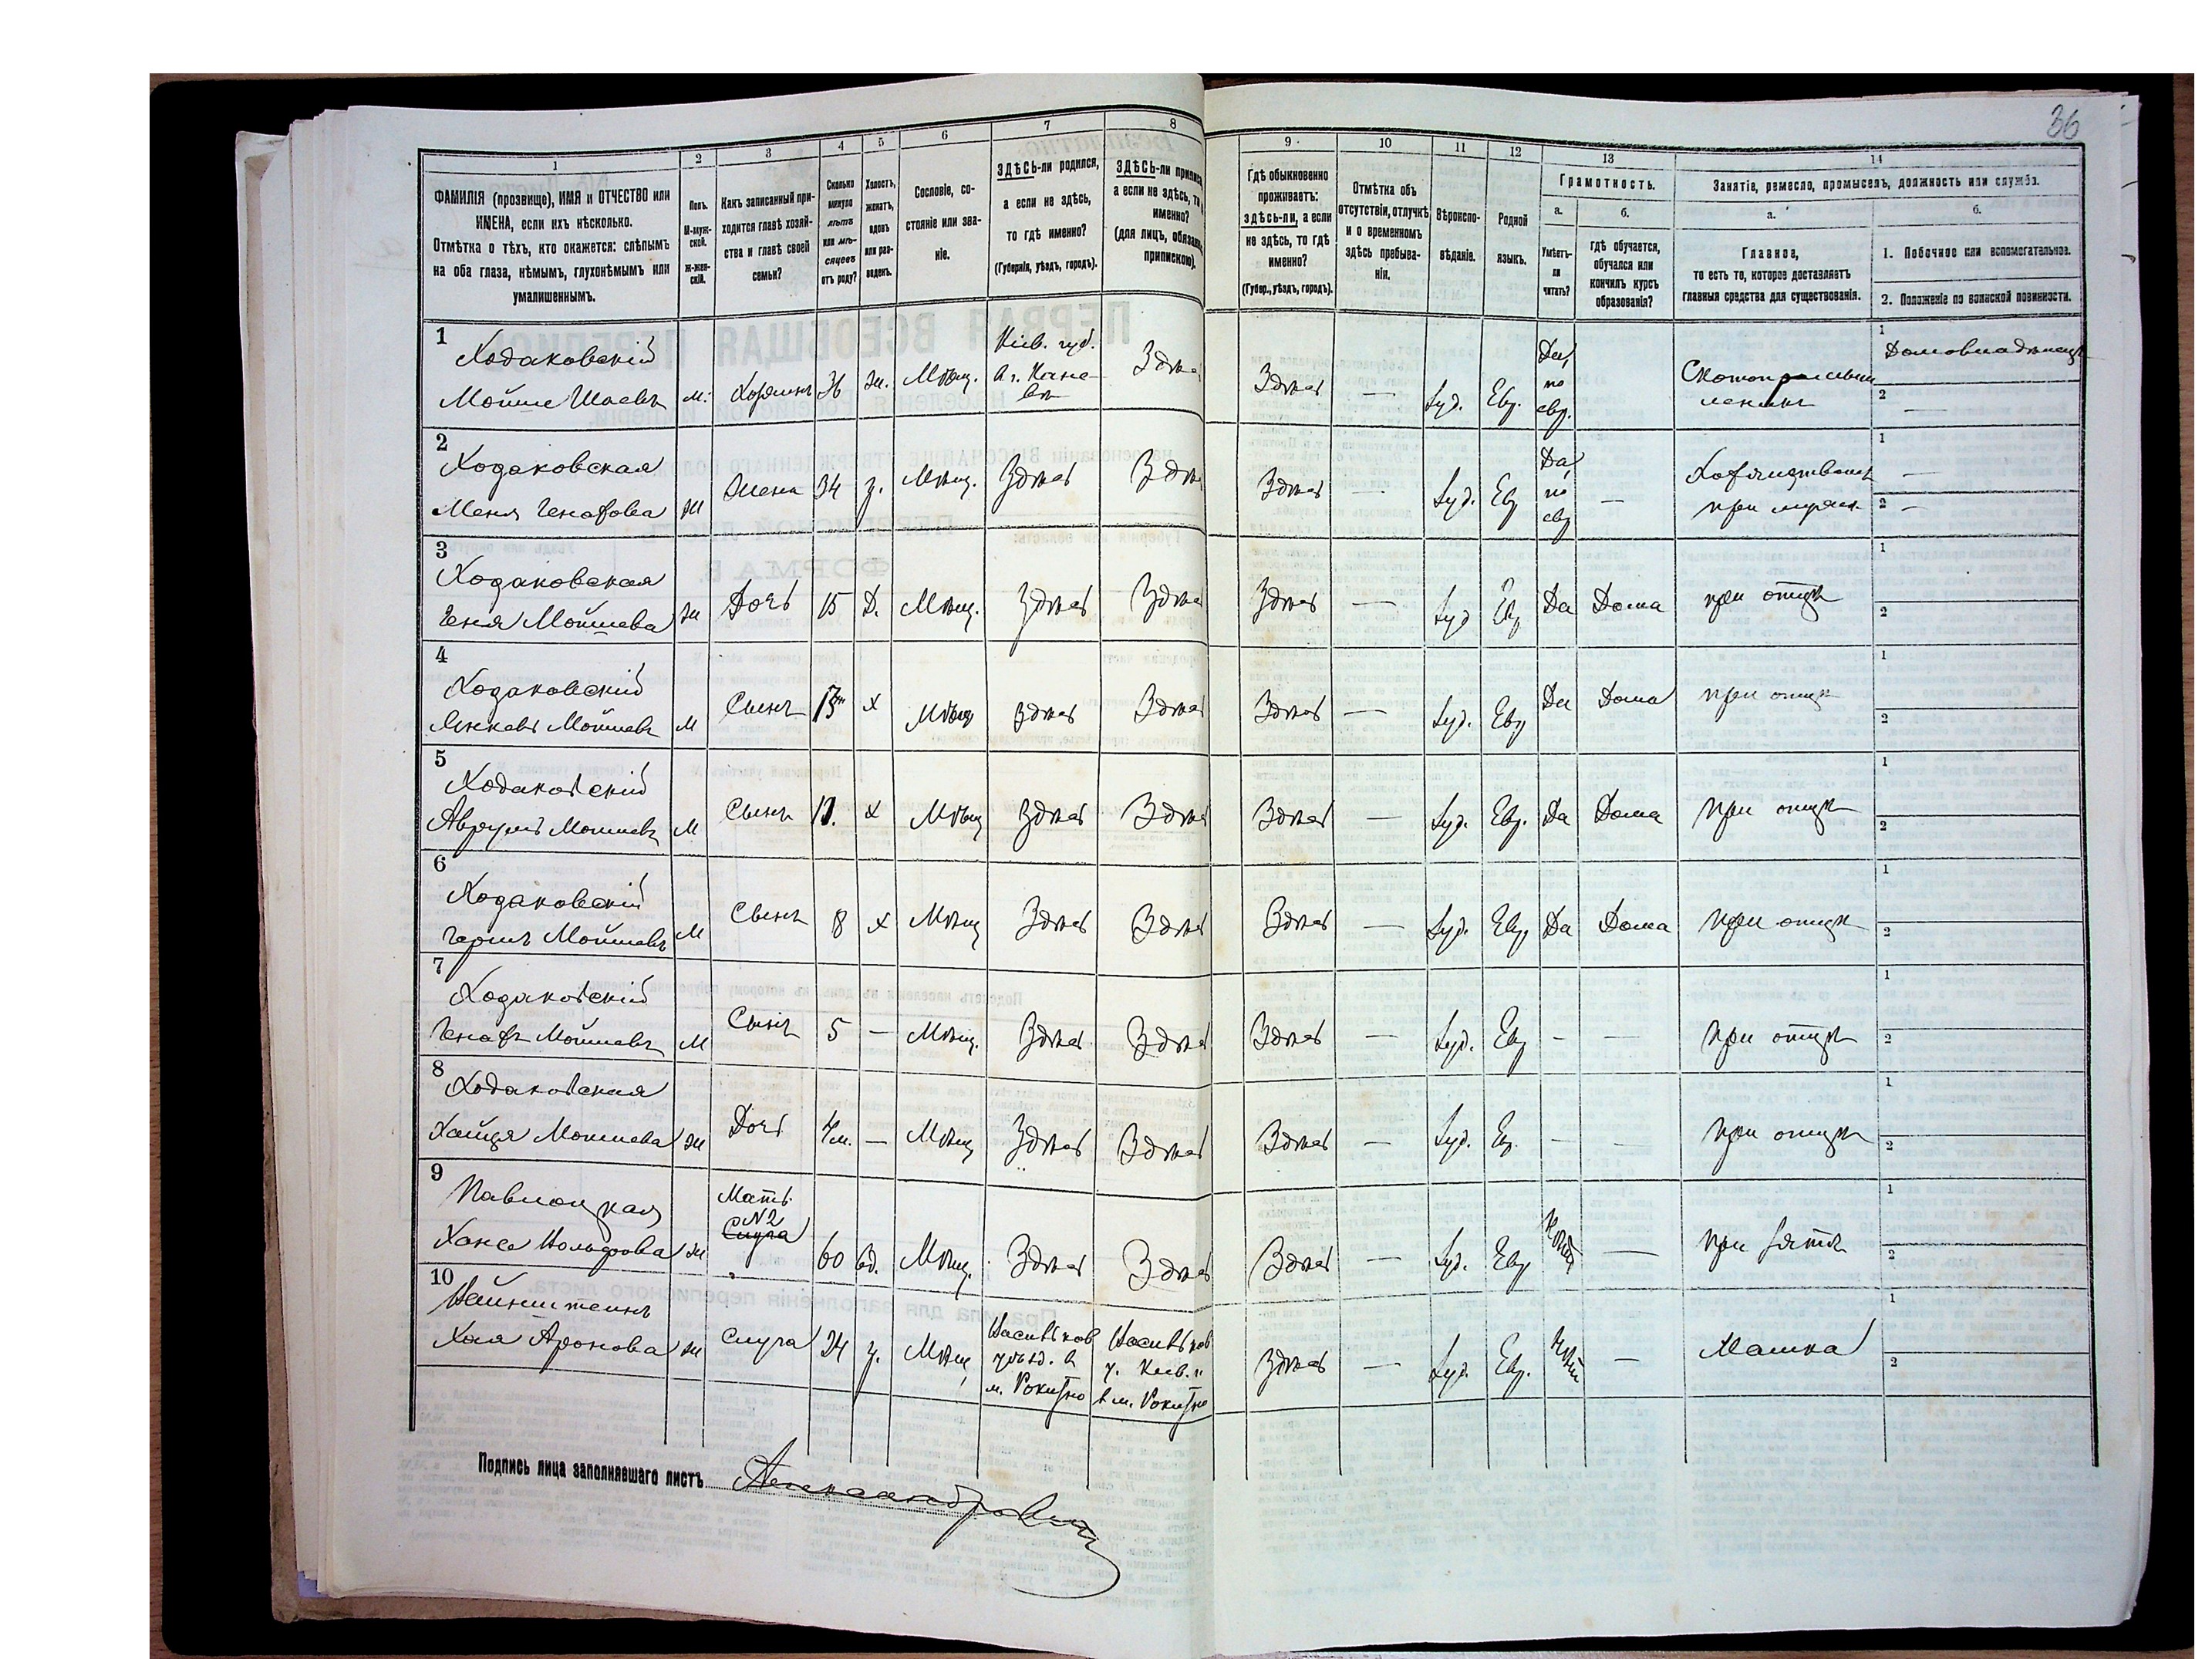 36
1
2
3
4
5
6
7
8
9
10
11
12
13
14
ФАМИЛІЯ (прозвище), ИМЯ и ОТЧЕСТВО или
ИМЕНА, если ихъ нѣсколько.
Отмѣтка о тѣхъ, кто окажется: слѣпымъ
на оба глаза, нѣмымъ, глухонѣмымъ или
умалишеннымъ.
Полъ.
М-муж-
ской.
Ж-жен-
скій.
Какъ записанный при-
ходится главѣ хозяй-
ства и главѣ своей
семьи?
Сколько
минуло
лѣтъ
или мѣ-
сяцевъ
отъ роду?
Холостъ,
женатъ,
вдовъ
или раз-
веденъ.
Сословіе, со-
стояніе или зва-
ніе.
ЗДѢСЬ-ли родился,
а если не здѣсь,
то гдѣ именно?
(Губернія, уѣздъ, городъ).
ЗДѢСЬ-ли
а если не здѣсь,
именно?
(для лицъ,
припискою).
Гдѣ обыкновенно
проживаетъ:
здѣсь-ли, а если
не здѣсь, то гдѣ
именно?
(Губер., уѣздъ, городъ).
Отмѣтка объ
отсутствіи, отлучкѣ
и о временномъ
здѣсь пребыва-
ніи.
Вѣроиспо-
вѣданіе.
Родной
языкъ.
Грамотность.
а.
б.
Умѣетъ-
ли
читать?
Гдѣ обучается,
обучался или
кончилъ курсъ
образованія?
Занятіе, ремесло, промыселъ, должность или служба.
а.
б.
Главное,
то есть то, которое доставляетъ
главныя средства для существованія.
1. Побочное или вспомогательное.
2. Положеніе по воинской повинности.
1
Ходаковскій
Мойше Шаевъ
м.
Хозяинъ
36
ж.
Мѣщ.
Кіев. губ.
в г. Кане-
вѣ
Здѣсь
Іуд.
Евр.
Да,
по
евр.
Домовладѣлецъ
2
Ходаковская
Меня
Ж
Жена
34
з.
Мѣщ.
Здѣсь
Здѣсь
Здѣсь
—
Іуд.
Евр
Да,
по
евр
—
при мужѣ
3
Ходаковская
Геня Мойшева
Ж
Дочь
15
Д.
Мѣщ.
Здѣсь
Здѣсь
Здѣсь
—
Іуд
Евр
Да
Дома
при отцѣ
4
Ходаковскій
Янкель Мойшевъ
М
Сынъ
Х
Мѣщ
Здѣсь
Здѣсь
Здѣсь
—
Іуд.
Евр
Да
Дома
при отцѣ
5
Ходаковскій
Аврумъ Мошкевъ
М
Сынъ
Х
Мѣщ
Здѣсь
Здѣсь
Здѣсь
—
Іуд.
Евр.
Да
Дома
при отцѣ
6
Ходаковскій
Гершъ Мойшевъ
М
Сынъ
8
х
Мѣщ
Здѣсь
Здѣсь
Здѣсь
—
Іуд.
Евр
Да
Дома
при отцѣ
7
Ходаковскій
Мошкевъ
М
Сынъ
5
—
Мѣщ.
Здѣсь
Здѣсь
Здѣсь
—
Іуд.
Евр
—
—
при отцѣ
8
Ходаковская
Мошкева
Ж
Дочь
—
Мѣщ
Здѣсь
Здѣсь
Здѣсь
—
Іуд.
Евр.
—
—
при отцѣ
9
Павлоцкая
Ж
Мать
№2
Слуга
60
вд.
Мѣщ.
Здѣсь
Здѣсь
Здѣсь
—
Іуд.
Евр
Нѣтъ
—
при зятѣ
10
Вайнштейнъ
Хая Аронова
Ж
Слуга
24
з.
Мѣщ
Васильков
уѣзд. в
м. Рокитно
Васильков
у. Кіев. г.
в м. Рокитно
Здѣсь
—
Іуд.
Евр.
Нѣтъ
—
Мамка
Подпись лица заполнявшаго листъ